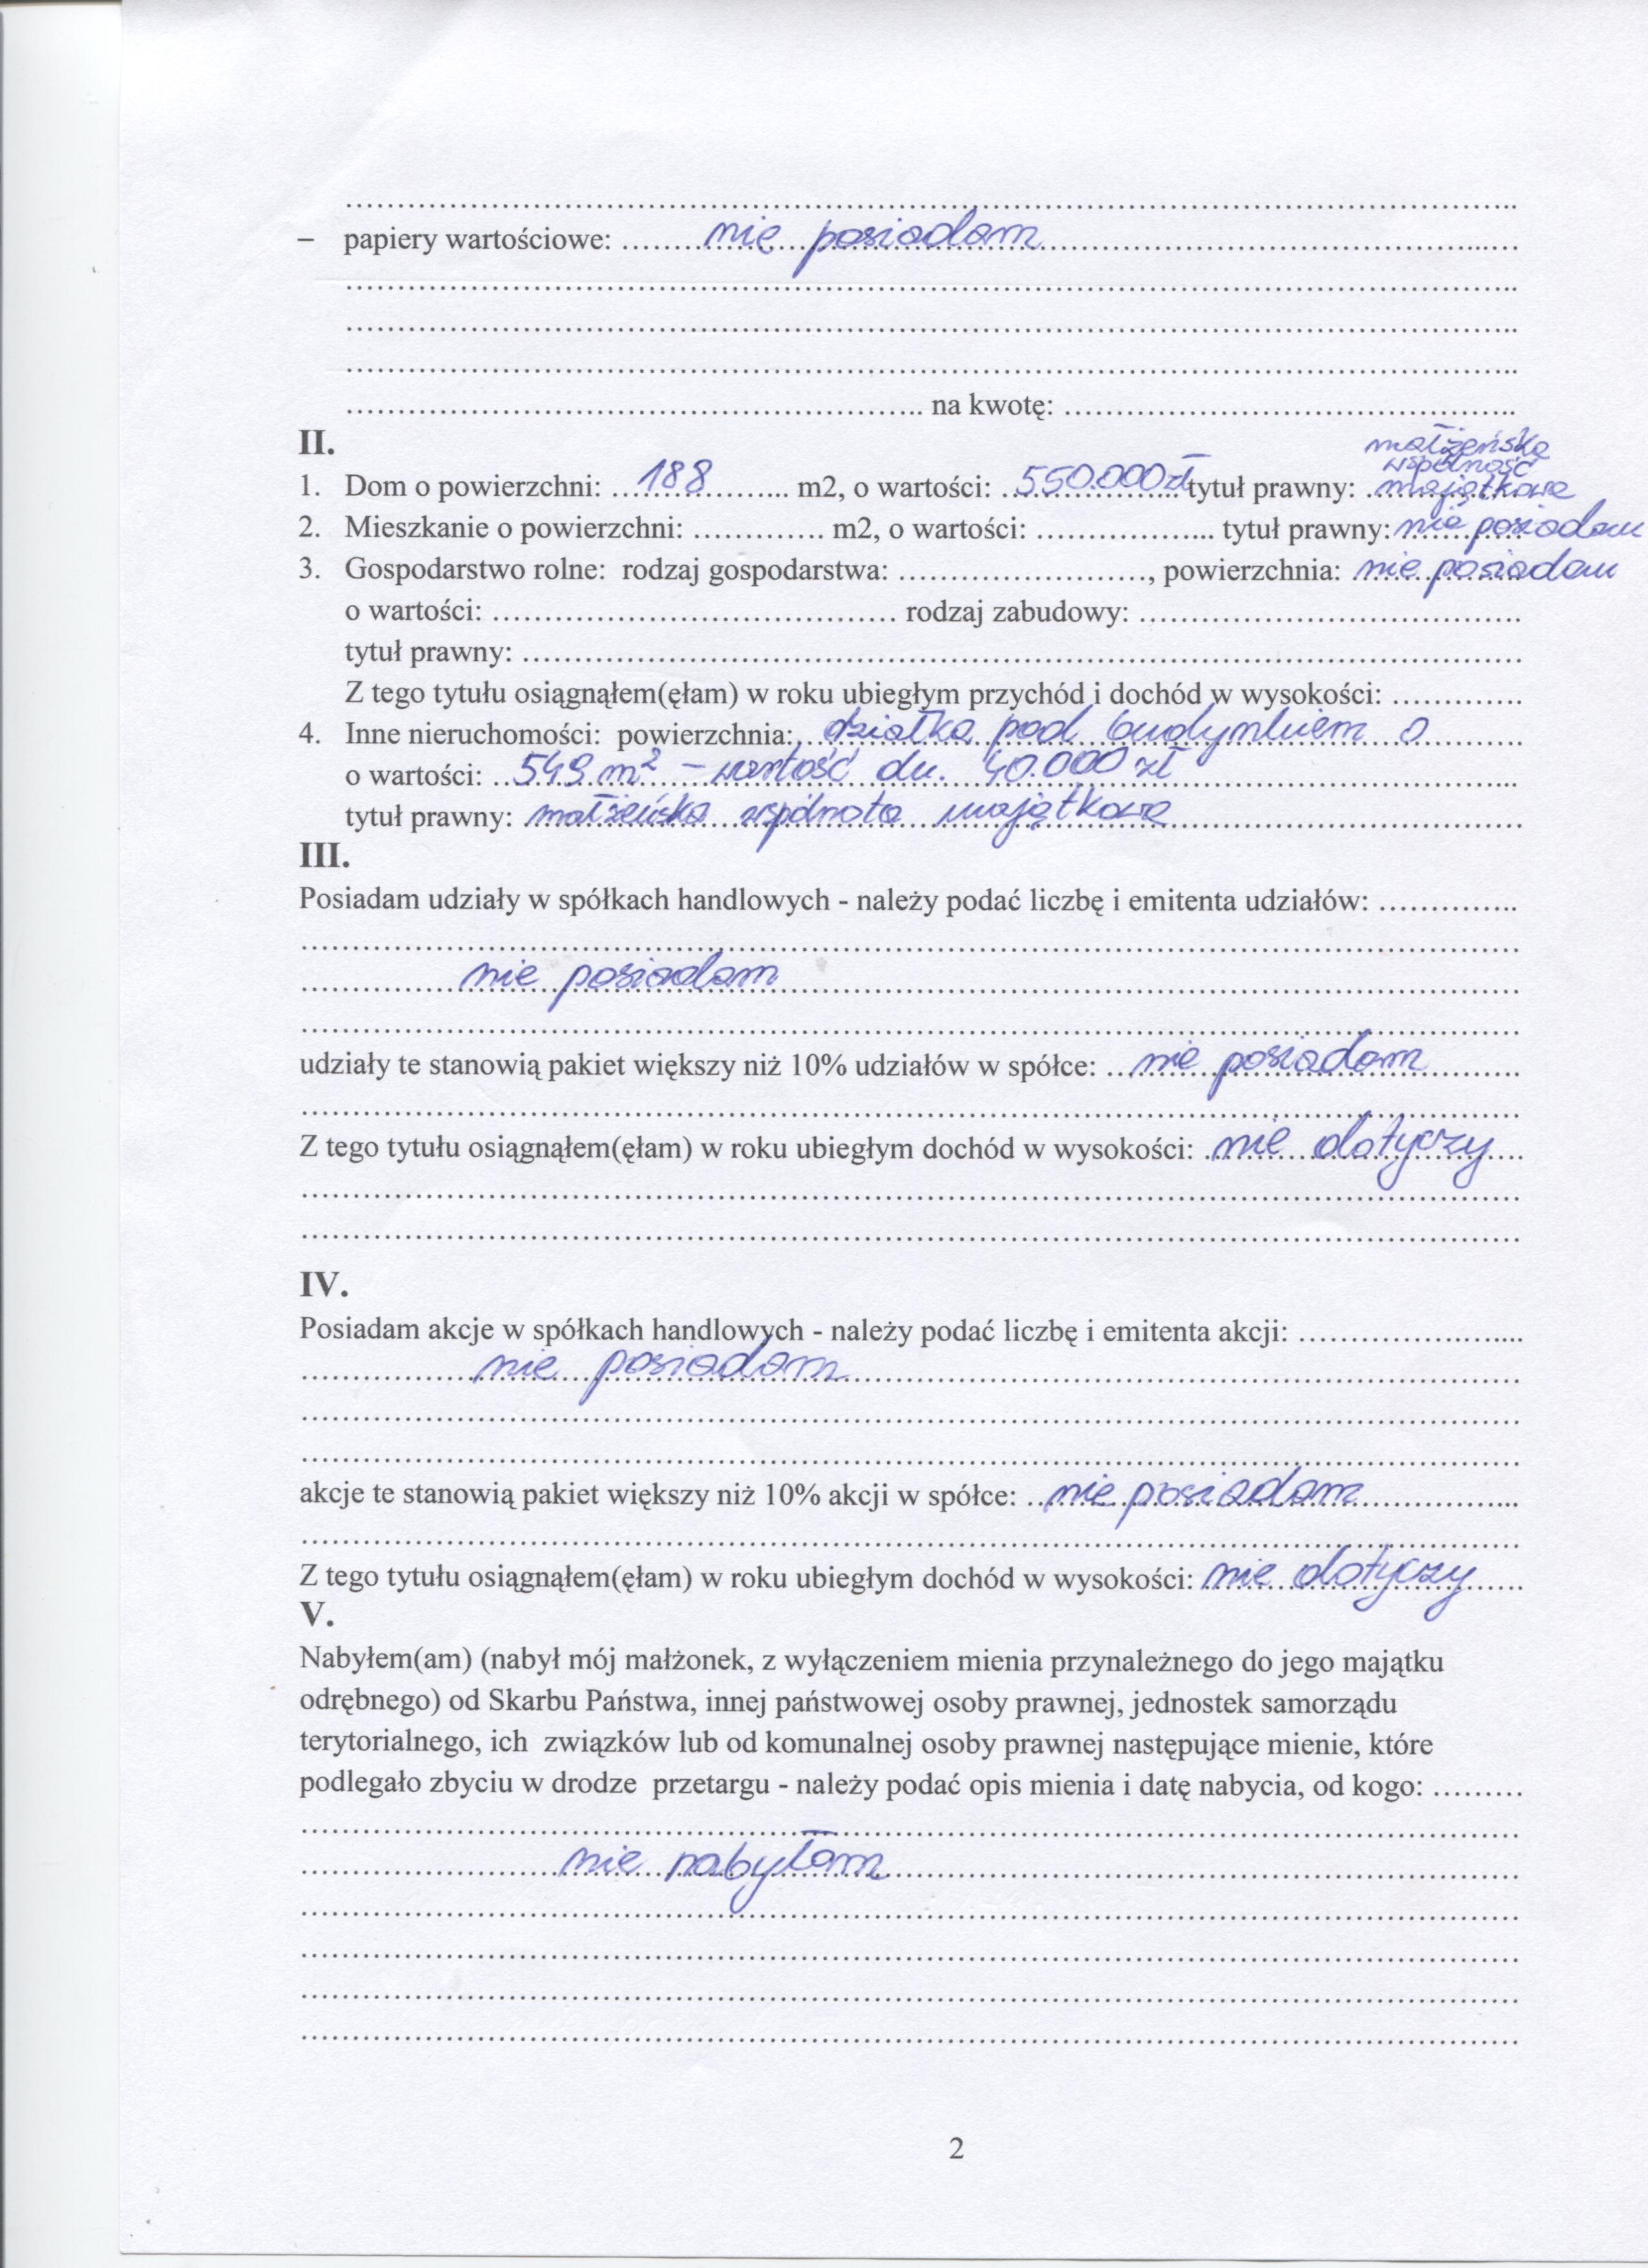 – papiery wartościowe: ........nie posiadam...............
na kwotę: ...............
II.
małżeńska
wspólność
1. Dom o powierzchni: ...188......... m2, o wartości: ..550.000zł tytuł prawny: ..majątkowa
2. Mieszkanie o powierzchni: ............. m2, o wartości: .................. tytuł prawny: nie posiadam
3. Gospodarstwo rolne: rodzaj gospodarstwa: ........................., powierzchnia: nie posiadam
o wartości: ........................................ rodzaj zabudowy: ......................................
tytuł prawny: ...............
Z tego tytułu osiągnąłem(ęłam) w roku ubiegłym przychód i dochód w wysokości: .............
4. Inne nieruchomości: powierzchnia: działka pod budynkiem o
o wartości: ..549 m² – wartość dz. 40.000 zł
tytuł prawny: małżeńska wspólnota majątkowa
III.
Posiadam udziały w spółkach handlowych - należy podać liczbę i emitenta udziałów: ..............
nie posiadam
udziały te stanowią pakiet większy niż 10% udziałów w spółce: ..nie posiadam..........
Z tego tytułu osiągnąłem(ęłam) w roku ubiegłym dochód w wysokości: .nie dotyczy....
IV.
Posiadam akcje w spółkach handlowych - należy podać liczbę i emitenta akcji: ......................
nie posiadam
akcje te stanowią pakiet większy niż 10% akcji w spółce: ..nie posiadam................
Z tego tytułu osiągnąłem(ęłam) w roku ubiegłym dochód w wysokości: nie dotyczy.....
V.
Nabyłem(am) (nabył mój małżonek, z wyłączeniem mienia przynależnego do jego majątku
odrębnego) od Skarbu Państwa, innej państwowej osoby prawnej, jednostek samorządu
terytorialnego, ich związków lub od komunalnej osoby prawnej następujące mienie, które
podlegało zbyciu w drodze przetargu - należy podać opis mienia i datę nabycia, od kogo: .........
nie nabyłam
2